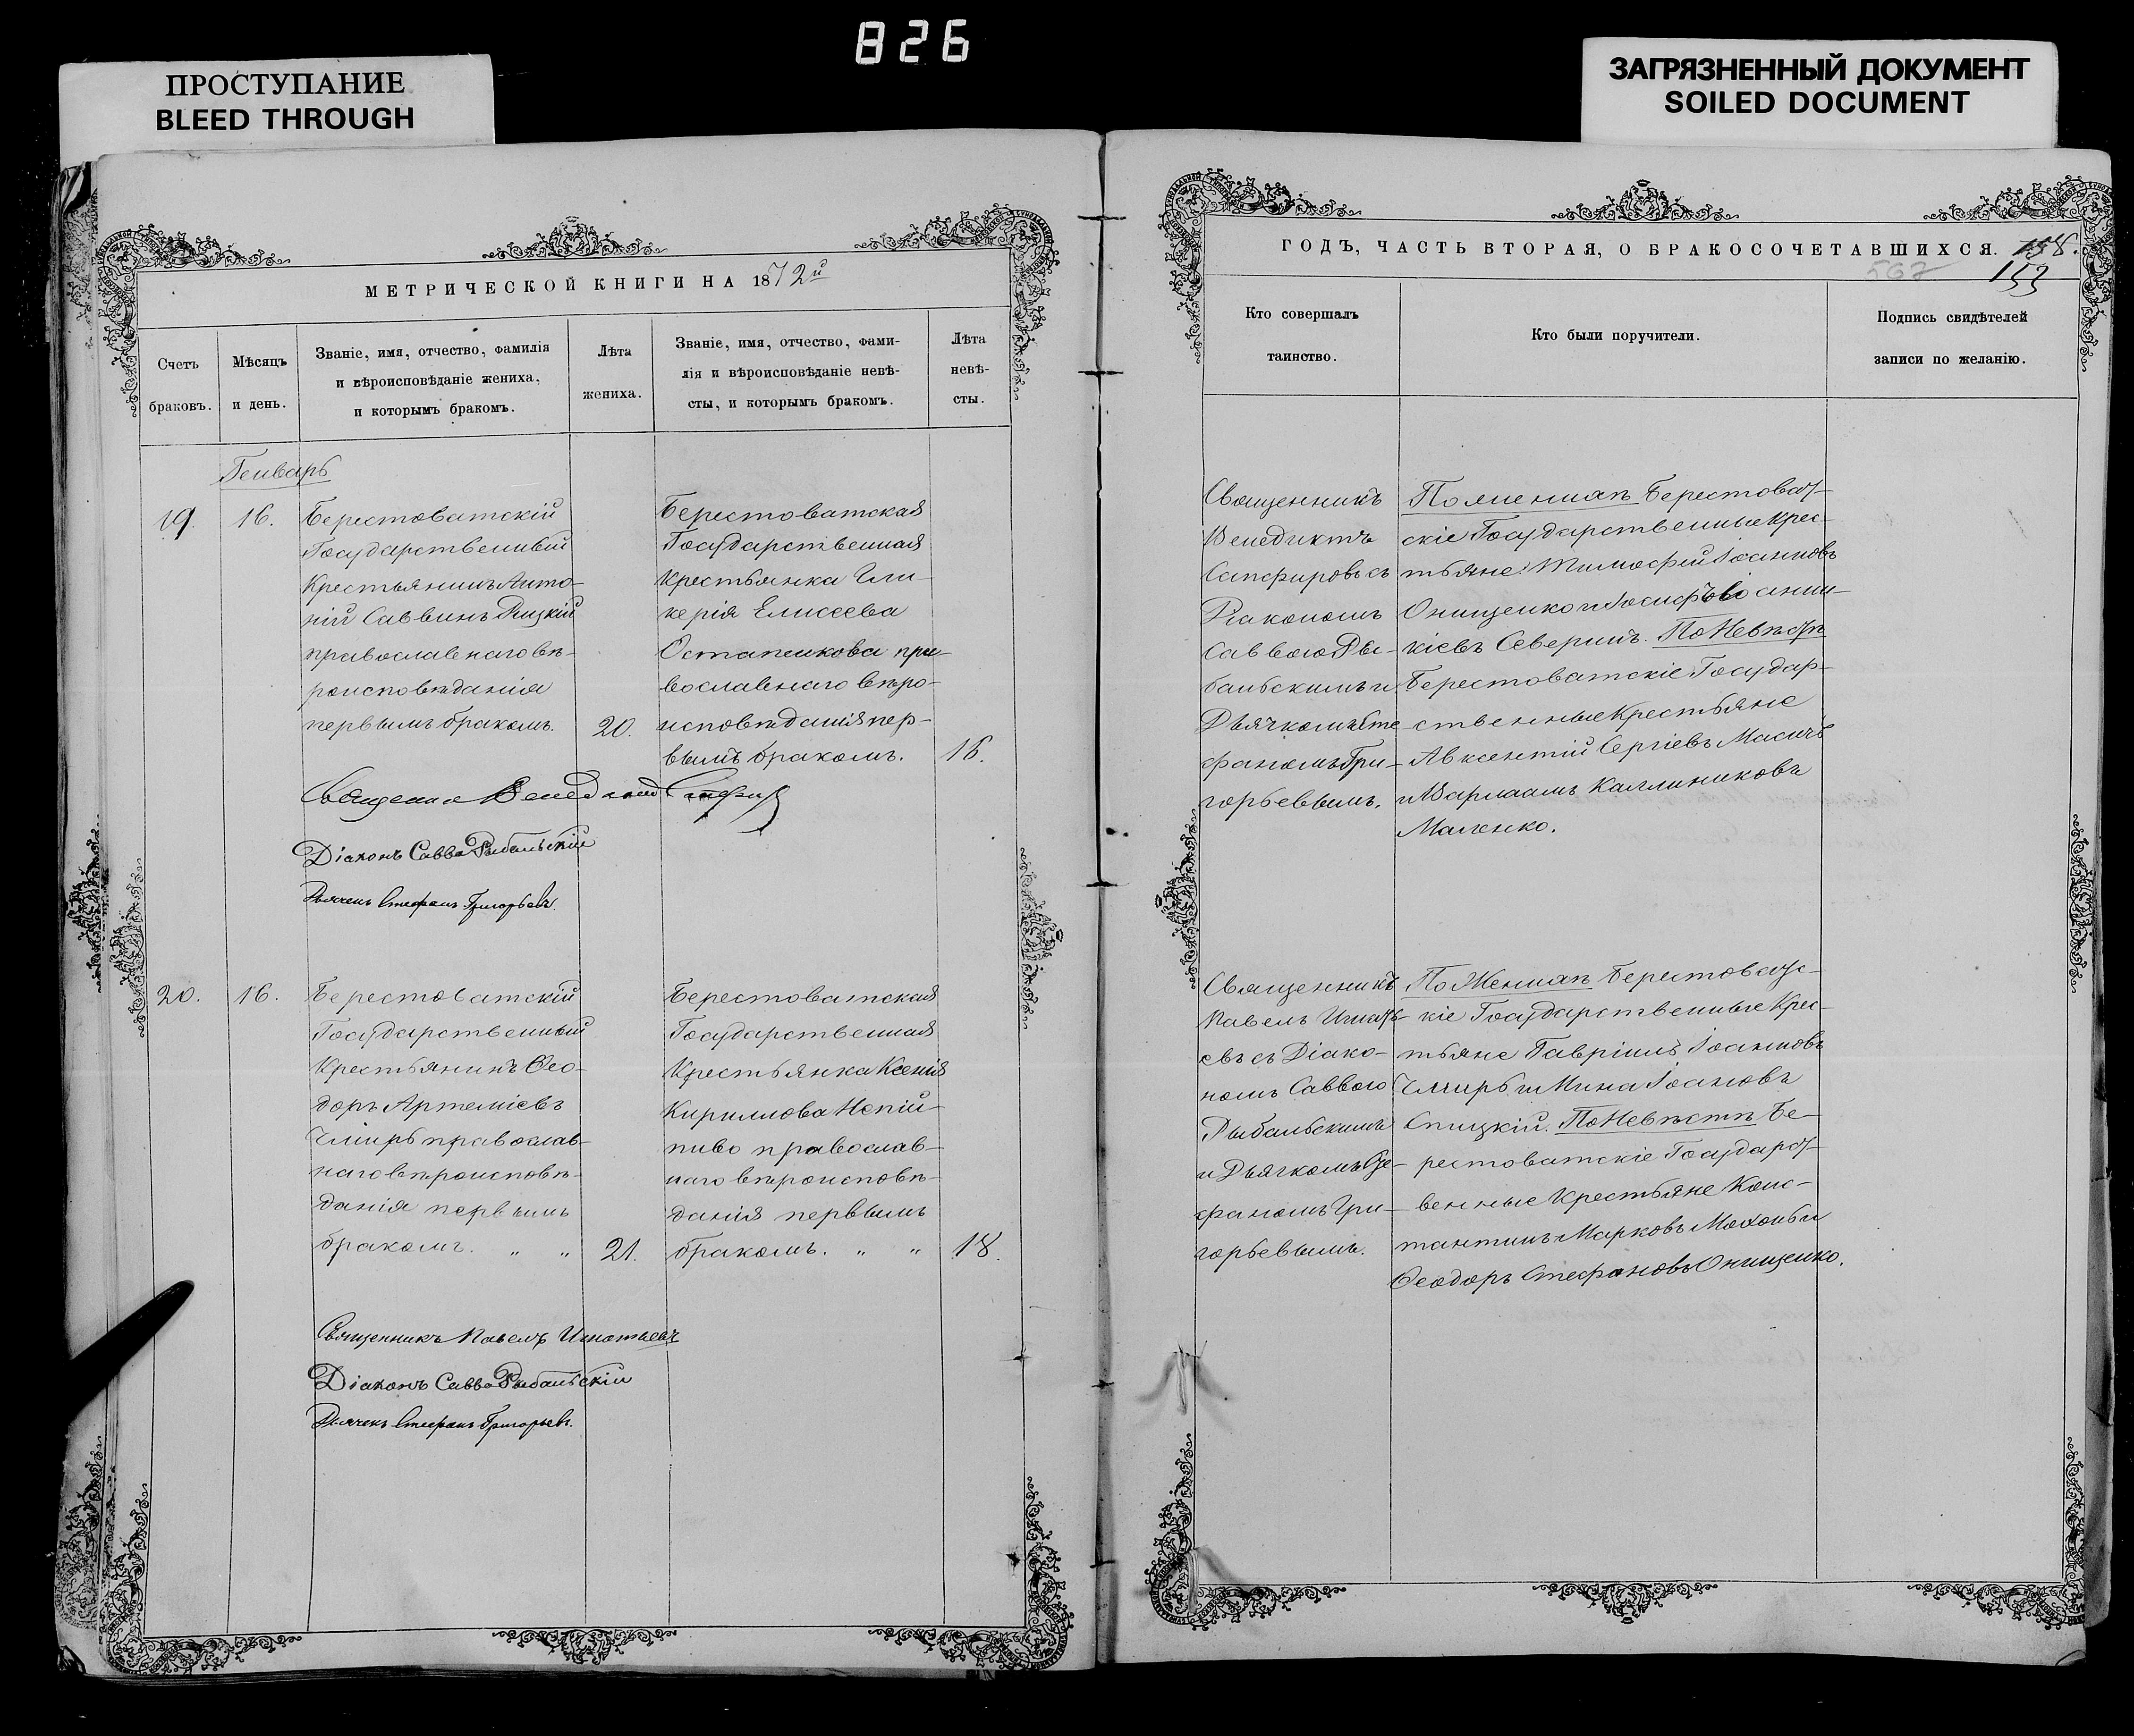 826
ПРОСТУПАНИЕ
BLEED THROUGH
ЗАГРЯЗНЕННЫЙ ДОКУМЕНТ
SOILED DOCUMENT
МЕТРИЧЕСКОЙ КНИГИ НА 1872й
Счетъ
браковъ.
Мѣсяцъ
и день.
Званіе, имя, отчество, фамилія
и вѣроисповѣданіе жениха,
и которымъ бракомъ.
Лѣта
жениха.
Званіе, имя, отчество, фами-
лія и вѣроисповѣданіе невѣ-
сты, и которымъ бракомъ.
Лѣта
невѣ-
сты.
Генварь
19.
16.
Берестоватскій
Государственный
Крестьянинъ Анто-
ній Саввинъ
православнаго вѣ-
роисповѣданія
первымъ бракомъ.
20.
Берестоватская
Государственная
Крестьянка Гли-
керія Елисеева
Остапенкова пра-
вославнаго вѣро-
исповѣданія пер-
вымъ бракомъ.
16.
Діаконъ Савва Рыбальскій
Дьячекъ Стефанъ Григорьевъ.
20.
16.
Берестоватскій
Государственный
Крестьянинъ Ѳео-
доръ Артеміевъ
Чмиръ православ-
наго вѣроисповѣ-
данія первымъ
бракомъ. „ „
21.
Берестоватская
Государственная
Крестьянка Ксенія
Кириллова Непій-
пиво православ-
наго вѣроисповѣ-
данія первымъ
бракомъ. „ „
18.
Священникъ Павелъ Игнатьевъ
Діаконъ Савва Рыбальскій
Дьячекъ Стефанъ Григорьевъ.
ГОДЪ, ЧАСТЬ ВТОРАЯ, О БРАКОСОЧЕТАВШИХСЯ. 158.
567
153
Кто совершалъ
таинство.
Кто были поручители.
Подпись свидѣтелей
записи по желанію.
Священникъ
Венедиктъ
Сапфировъ съ
Діакономъ
Саввою Ры-
бальскимъ и
Дьячкомъ Сте
фаномъ Гри-
горьевымъ.
По женихѣ Берестоват-
скіе Государственные Крес-
тьяне: Тимофей Іоанновъ
Онищенко и Іосифъ Іоанни-
кіевъ Северинъ. По Невѣстѣ
Берестоватскіе Государ-
ственные Крестьяне
Авксентій Сергіевъ Масичъ
и Варлаамъ Каллиниковъ
Маленко.
Священникъ
Павелъ Игнать-
евъ съ Діако-
номъ Саввою
Рыбальскимъ
и Дьячкомъ Сте-
фаномъ Гри-
горьевымъ.
По Женихѣ Берестоватс-
кіе Государственные Крес-
тьяне Гавріилъ Іоанновъ
Чмиръ и Мина Іоановъ
Спицкій. По Невѣстѣ Бе-
рестоватскіе Государст-
венные Крестьяне Конс-
тантинъ Марковъ Махонь и
Ѳеодоръ Стефановъ Онищенко.